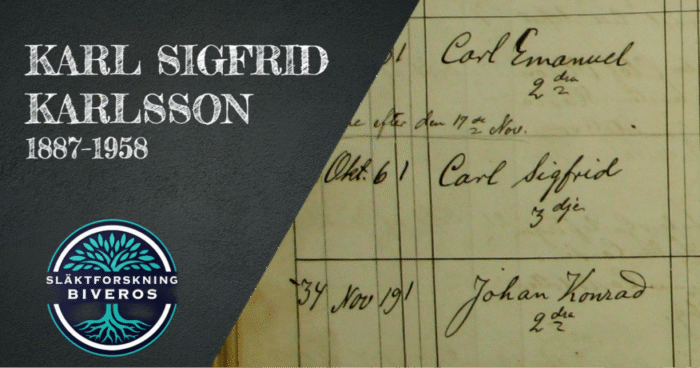 KARL SIGFRID
KARLSSON
1887-1958
SLÄKTFORSKNING
BIVEROS
1 Carl Emanuel
2 dra
efter den 17 de Nov.
Okt. 6 1 Carl Sigfrid
3 dje
34 Nov 19 1 Johan Konrad
2 dra